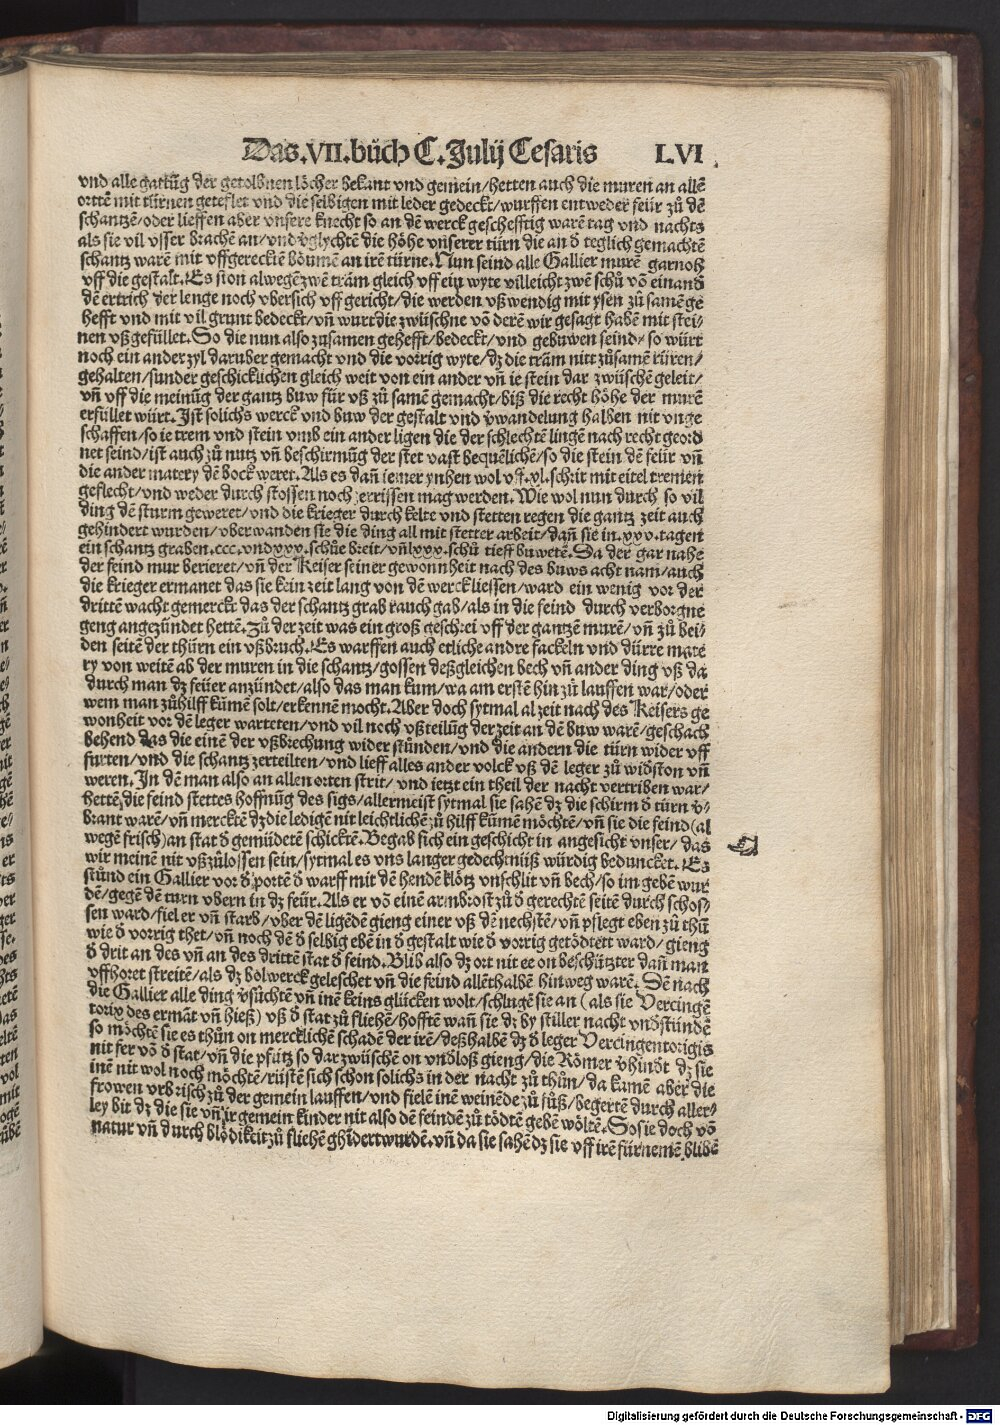 Das.VII.bůch C.Julij Cesaris LVI
vnd alle gattūg der getolbnen lôcher bekant vnd gemein/hetten auch die muren an allē
orttē mit türnen geteflet vnd die selbigen mit leder gedeckt/wurffen entweder feür zů dē
schantzē/oder lieffen aber vnsere knecht so an dē werck geschefftig warē tag vnd nachts
als sie vil vsser brachē an/vnd vglychtē die hôhe vnserer türn die an ð teglich gemachtē
schantz warē mit vffgerecktē bôumē an irē türne.Nun seind alle Gallier murē garnoh
vff die gestalt.Es ston alwegē zwē träm gleich vff ein wyte villeicht zwē schů vō einand
dē ertrich der lenge noch vbersich vff gericht/die werden vßwendig mit ysen zů samēge
hefft vnd mit vil grunt bedeckt/vn̄ wurt die zwüschne vō derē wir gesagt habē mit stei/
nen vßgefüllet.So die nun also zusamen gehefft/bedeckt/vnd gebuwen seind/so würt
noch ein ander zyl daruber gemacht vnd die vorrig wyte/dz die träm nitt zůsamē rüren/
gehalten/sunder geschicklichen gleich weit von ein ander vn̄ ie stein dar zwüschē geleit/
vn̄ vff die meinūg der gantz buw für vß zů samē gemacht/biß die recht hôhe der murē
erfüllet würt.Ist solichs werck vnd buw der gestalt vnd vwandelung halben nit vnge
schaffen/so ie trem vnd stein vmb ein ander ligen die der schlechtē lingē nach recht geord
net seind/ist auch zů nutz vn̄ beschirmūg der stet vast bequēlichē/so die stein dē feür vn̄
die ander matery dē bock weret.Als es dan̄ iemer ynhen wol vff.xl.schrit mit eitel tremen
geflecht/vnd weder durch stossen noch zerrissen mag werden.Wie wol nun durch so vil
ding dē sturm geweret/vnd die krieger durch kelte vnd stetten regen die gantz zeit auch
gehindert wurden/vberwanden sie die ding all mit stetter arbeit/dan̄ sie in.xxv.tagen
ein schantz graben.ccc.vnd xxx.schůe breit/vn̄ lxxx.schů tieff buwetē.Da der gar nahe
der feind mur berieret/vn̄ der Keiser seiner gewonnheit nach des buws acht nam/auch
die krieger ermanet das sie kein zeit lang von dē werck liessen/ward ein wenig vor der
drittē wacht gemerckt das der schantz grab rauch gab/als in die feind durch verborgne
geng angezündet hettē.Zů der zeit was ein groß geschrei vff der gantzē murē/vn̄ zů bei/
den seitē der thürn ein vßbruch.Es warffen auch etliche andre fackeln vnd dürre mate
ry von weitē ab der muren in die schantz/gossen deßgleichen bech vn̄ ander ding vß da
durch man dz feüer anzündet/also das man kum/wa am erstē hin zů lauffen war/oder
wem man zůhilff kūmē solt/erkennē mocht.Aber doch sytmal al zeit nach des Keisers ge
wonheit vor dē leger warteten/vnd vil noch vßteilūg der zeit an dē buw warē/geschach
behend das die einē der vßbrechung wider stůnden/vnd die andern die türn wider vff
furten/vnd die schantz zerteilten/vnd lieff alles ander volck vß dē leger zů widston vn̄
weren.In dē man also an allen orten strit/vnd ietzt ein theil der nacht vertriben war/
hettē die feind stettes hoffnūg des sigs/allermeist sytmal sie sahē dz die schirm ð türn v̄-
brant warē/vn̄ mercktē dz die ledigē nit leichtlichē zů hilff kūmē mòchtē/vn̄ sie die feind(al
wegē frisch)an stat ð gemüdetē schicktē.Begab sich ein geschicht in angesicht vnser/das
wir meinē nit vßzůlossen sein/sytmal es vns langer gedechtnüß würdig beduncket.Es
stůnd ein Gallier vor ð portē ð warff mit dē hendē klôtz vnschlit vn̄ bech/so im gebē wur
dē/gegē dē turn vbern in dz feür.Als er vō einē armbrost zů ð gerechtē seitē durch schos/
sen ward/fiel er vn̄ starb/vber dē ligēdē gieng einer vß dē nechstē/vn̄ pflegt eben zů thū
wie ð vorrig thet/vn̄ noch dē ð selbig ebē in ð gestalt wie ð vorrig getôdtett ward/gieng
ð drit an des vn̄ an des drittē stat ð feind.Blib also dz ort nit ee on beschützter dan̄ man
vffhoret streitē/als dz bolwerck geleschet vn̄ die feind allēthalbē hinweg warē.Dē nach
die Gallier alle ding v̄süchtē vn̄ inē keins glücken wolt/schlugē sie an (als sie Vercingē
torix des ermāt vn̄ hieß) vß ð stat zů fliehē/hofftē wan̄ sie dz by stiller nacht vnðstündē
so môchtē sie es thůn on mercklichē schadē der irē/deßhalbē dz ð leger Vercingentorigis
nit fer vō ð stat/vn̄ die pfütz so dar zwüschē on vnðloß gieng/die Rômer v̄hindt dz sie
inē nit wol noch môchtē/rüstē sich schon solichs in der nacht zů thůn/da kamē aber die
frowen vrbrisch zů der gemein lauffen/vnd fielē inē weinēde zů fůß/begertē durch aller/
ley bit dz die sie vn̄ ir gemein kinder nit also dē feindē zů tôdtē gebē wôltē.So sie doch vō
natur vn̄ durch blôdikeit zů fliehē ghīdert wurdē.vn̄ da sie sahē dz sie vff irē fürnemē blibē
Digitalisierung gefördert durch die Deutsche Forschungsgemeinschaft - DFG